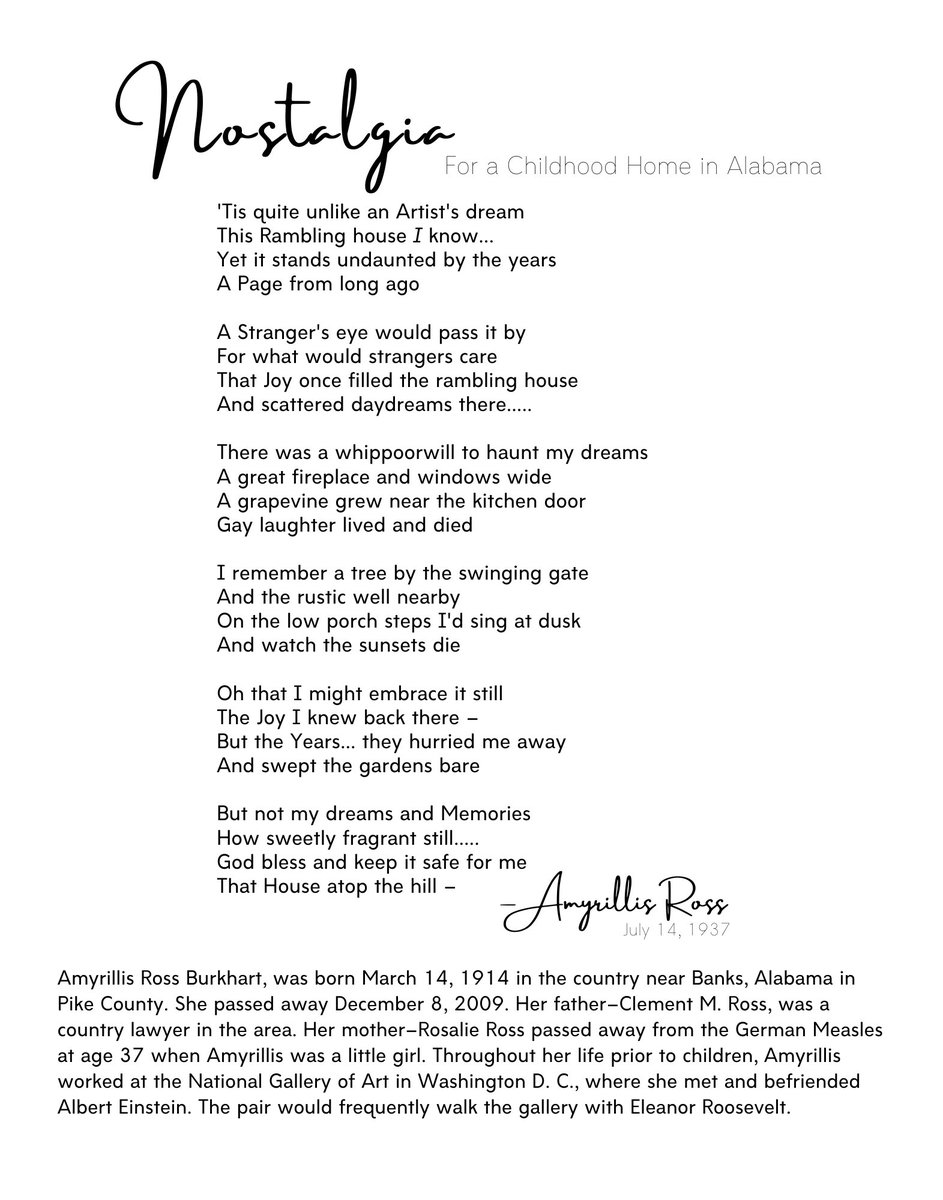 Nostalgia
For a Childhood Home in Alabama
'Tis quite unlike an Artist's dream
This Rambling house I know...
Yet it stands undaunted by the years
A Page from long ago
A Stranger's eye would pass it by
For what would strangers care
That Joy once filled the rambling house
And scattered daydreams there.....
There was a whippoorwill to haunt my dreams
A great fireplace and windows wide
A grapevine grew near the kitchen door
Gay laughter lived and died
I remember a tree by the swinging gate
And the rustic well nearby
On the low porch steps I'd sing at dusk
And watch the sunsets die
Oh that I might embrace it still
The Joy I knew back there –
But the Years... they hurried me away
And swept the gardens bare
But not my dreams and Memories
How sweetly fragrant still.....
God bless and keep it safe for me
That House atop the hill –
–Amyrillis Ross
July 14, 1937
Amyrillis Ross Burkhart, was born March 14, 1914 in the country near Banks, Alabama in
Pike County. She passed away December 8, 2009. Her father–Clement M. Ross, was a
country lawyer in the area. Her mother–Rosalie Ross passed away from the German Measles
at age 37 when Amyrillis was a little girl. Throughout her life prior to children, Amyrillis
worked at the National Gallery of Art in Washington D. C., where she met and befriended
Albert Einstein. The pair would frequently walk the gallery with Eleanor Roosevelt.